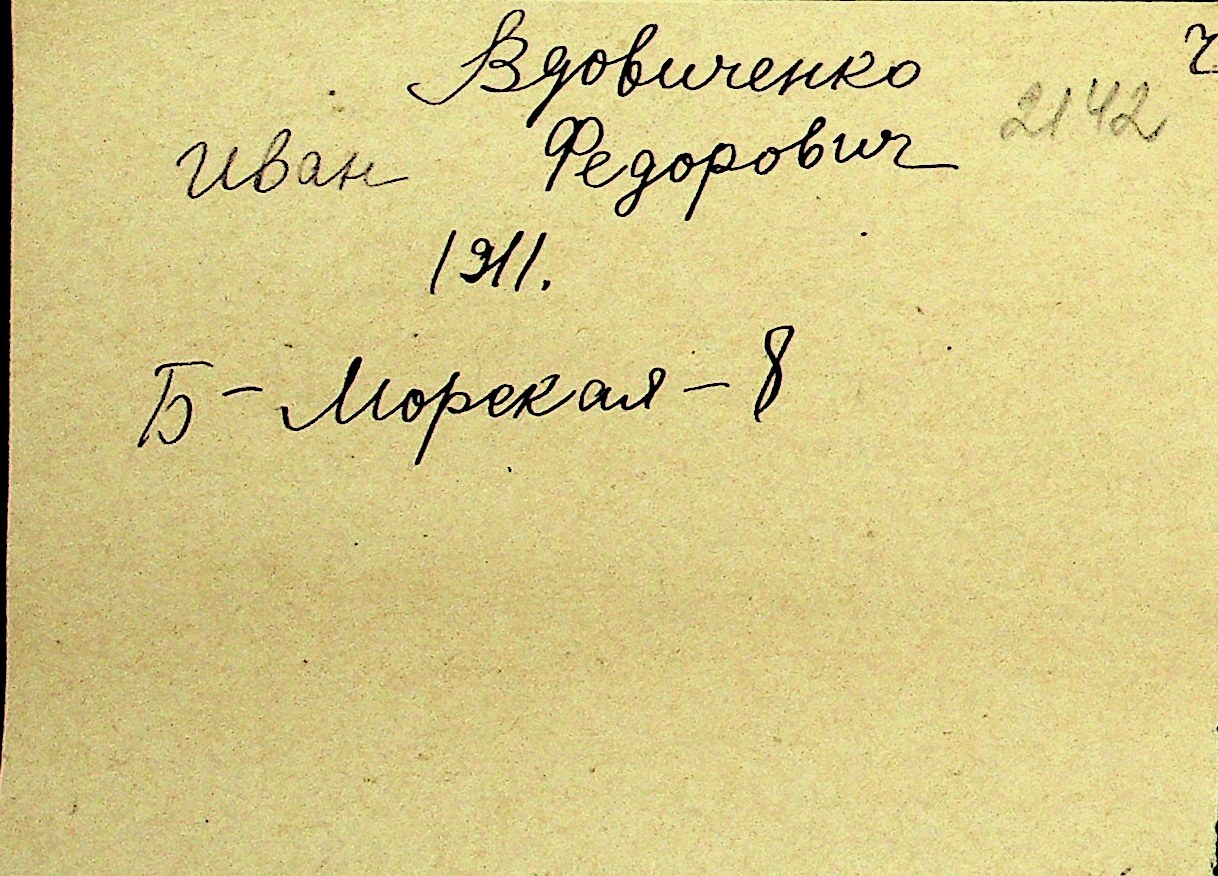 Вдовиченко
2142
Иван Федорович
1911.
Б-Морская-8